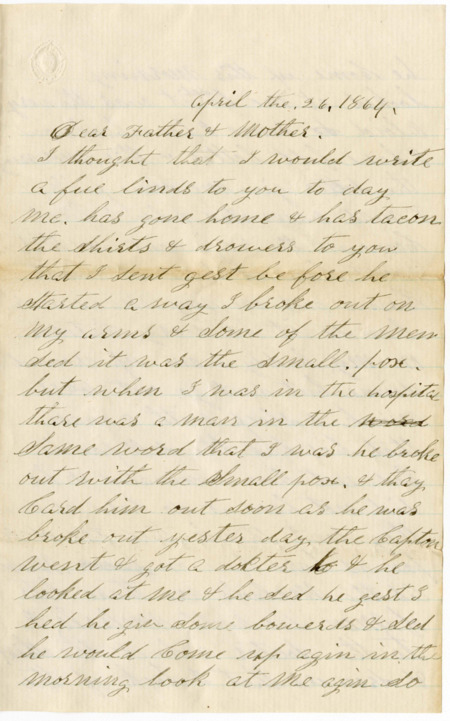 April the. 26, 1864.
Dear Father & Mother.
I thought that I would write
a fue linds to you to day
me. has gone home & has tacon
the Shirts & drowers to you
that I sent gest be fore he
started a way I broke out on
my arms & some of the men
sed it was the small. pox.
but when I was in the hospital
thare was a man in the word
same word that I was he broke
out with the small pox. & thay
Card him out soon as he was
broke out yester day the Capton
went & got a dokter & he
looked at me & he sed he gest I
hed he giv some & sed
he would Come up agin in the
morning look at me agin so